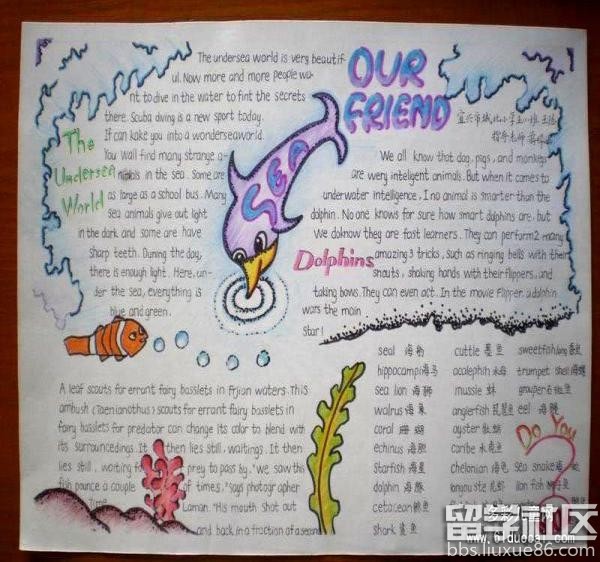 The undersea world is very beautif-
ul. Now more and more people wa-
nt to dive in the water to fint the secrets
there. Scuba diving is a new sport today.
If can kake you into a wonderseaworld.
You wall find many strange a-
nimals in the sea. Some are
as large as a school bus. Many
sea animals give out light
in the dark and some are have
sharp teeth. Duning the day,
there is enough light. Here, un-
der the sea, everything is
blue and green.
The
Undersea
World
SEA
OUR
FRIEND
We all know that dog, pigs, and monkeys
are wery inteligent animals. But when it comes to
underwater intelligence, I no animal is smarter than the
dolphin. No one knows for sure how smart dolphins are, but
We doknow they are fast learners. They can perform2 many
amazing 3 tricks, such as ringing bells with their
snouts, shaking hands with their flippers, and
taking bows. They can even act. In the movie Flipper, a dolphin
wars the main
Star!
Dolphins
A leaf scouts for errant fairy basslets in Frjian waters. This
ambush (Taenianothus) scouts for errant fairy basslets in
fairy basslets for predator can change its color to blend with
its surroundings. It then lies still, waitings. It then
lies still, waiting for prey to pass by. "we saw this
fish pounce a couple of times," says photographer
Time Laman. "His mouth shot out
and back in a fraction of a second
seal 海豹 cuttle 墨鱼 sweetfish
hippocampi 海马 acalephih 水母 trumpet shell 海螺
sea lion 海狮 mussie 蚌 grouper 石斑鱼
walrus 海象 anglerfish 琵琶鱼 eel 海鳗
coral 珊瑚 oyster 牡蛎
echinus 海胆 caribe 水虎鱼
Starfish 海星 chelonian 海龟 sea snake 海蛇
dolphin 海豚 lion fish 狮子鱼
cetacean 鲸鱼
shark 鲨鱼
Do You
留学社区
bbs.liuxue86.com
www.61duocai.com